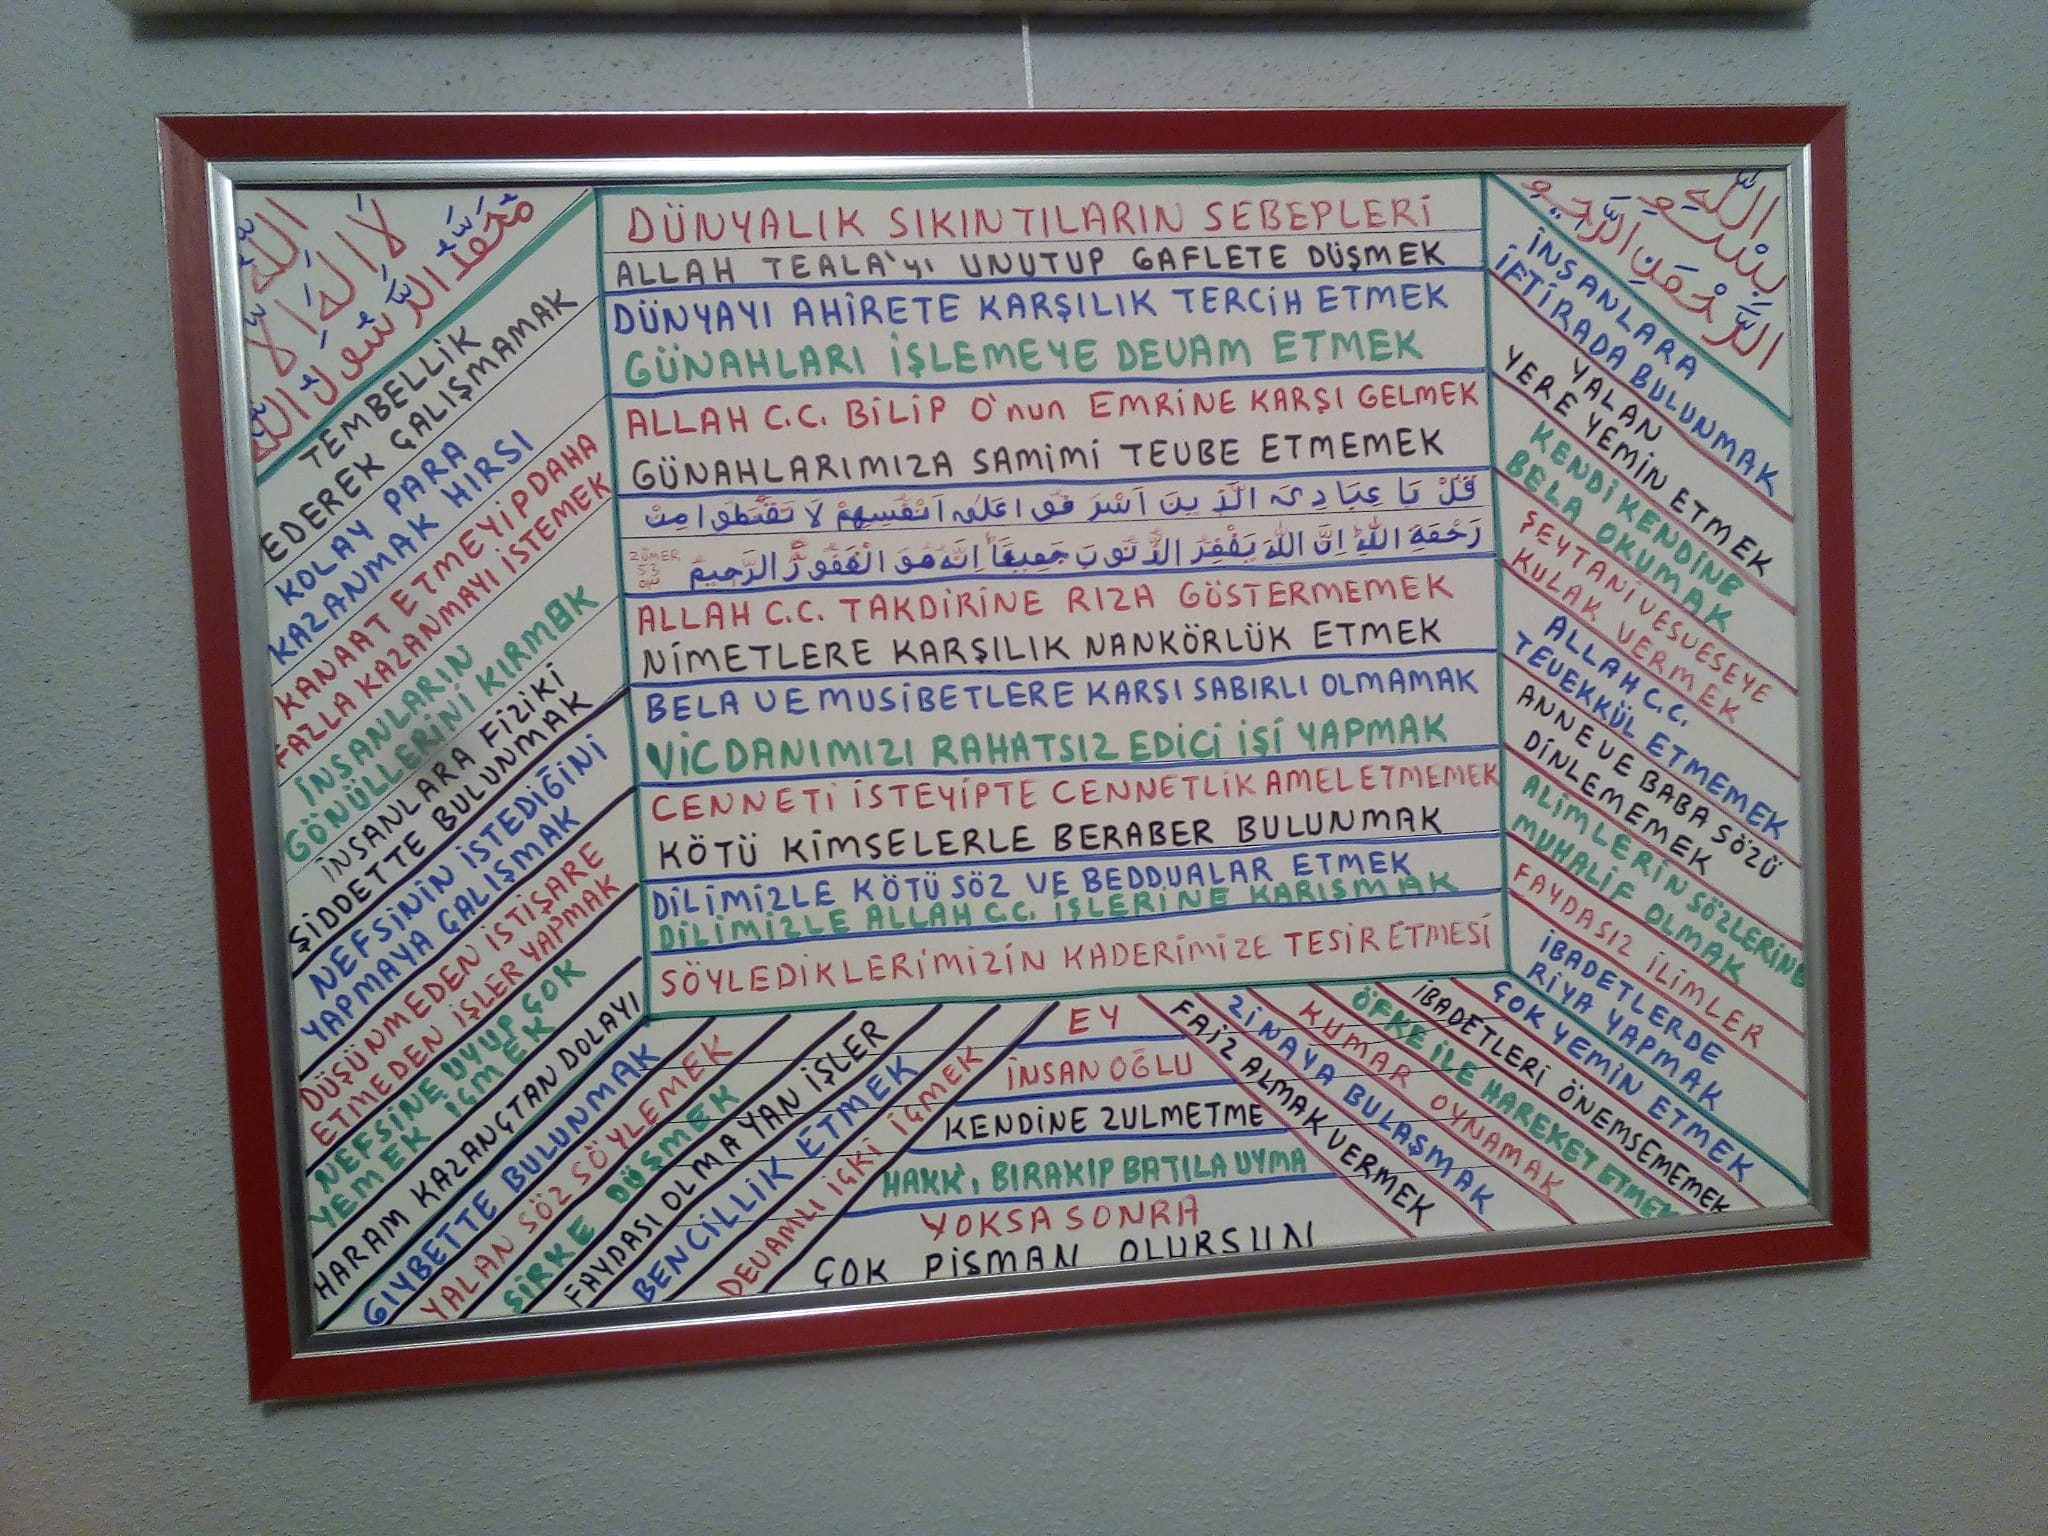 لَا اِلَهَ اِلَّا اللّٰهُ
مُحَمَّدُ الرَّسُولُ اللّٰهِ
بِسْمِ اللّٰهِ
الرَّحْمَنِ الرَّحِيمِ
DÜNYALIK SIKINTILARIN SEBEPLERİ
ALLAH TEALA'yı UNUTUP GAFLETE DÜŞMEK
DÜNYAYI AHİRETE KARŞILIK TERCİH ETMEK
GÜNAHLARI İŞLEMEYE DEVAM ETMEK
ALLAH C.C. BİLİP O'nun EMRİNE KARŞI GELMEK
GÜNAHLARIMIZA SAMİMİ TEVBE ETMEMEK
قُلْ يَا عِبَادِىَ الَّذِينَ اَسْرَفُوا عَلَى اَنْفُسِهِمْ لَا تَقْنَطُوا مِنْ
رَحْمَةِ اللّٰهِ اِنَّ اللّٰهَ يَغْفِرُ الذُّنُوبَ جَمِيعًا اِنَّهُ هُوَ الْغَفُورُ الرَّحِيمُ
ZÜMER
53
ALLAH C.C. TAKDİRİNE RIZA GÖSTERMEMEK
NİMETLERE KARŞILIK NANKÖRLÜK ETMEK
BELA VE MUSİBETLERE KARŞI SABIRLI OLMAMAK
VİCDANIMIZI RAHATSIZ EDİCİ İŞİ YAPMAK
CENNETİ İSTEYİPTE CENNETLİK AMEL ETMEMEK
KÖTÜ KİMSELERLE BERABER BULUNMAK
DİLİMİZLE KÖTÜ SÖZ VE BEDDUALAR ETMEK
DİLİMİZLE ALLAH C.C. İŞLERİNE KARIŞMAK
SÖYLEDİKLERİMİZİN KADERİMİZE TESİR ETMESİ
TEMBELLİK
EDEREK ÇALIŞMAMAK
KOLAY PARA
KAZANMAK HIRSI
KANAAT ETMEYİP DAHA
FAZLA KAZANMAYI İSTEMEK
İNSANLARIN
GÖNÜLLERİNİ KIRMEK
İNSANLARA FİZİKİ
ŞİDDETTE BULUNMAK
NEFSİNİN İSTEDİĞİNİ
YAPMAYA ÇALIŞMAK
DÜŞÜNMEDEN İSTİŞARE
ETMEDEN İŞLER YAPMAK
NEFSİNE UYUP ÇOK
YEMEK İÇMEK
HARAM KAZANÇTAN DOLAYI
GIYBETTE BULUNMAK
YALAN SÖZ SÖYLEMEK
ŞİRKE DÜŞMEK
FAYDASI OLMAYAN İŞLER
BENCİLLİK ETMEK
DEVAMLI İÇKİ İÇMEK
EY
İNSAN OĞLU
KENDİNE ZULMETME
HAKK'ı BIRAKIP BATILA UYMA
YOKSA SONRA
ÇOK PİŞMAN OLURSUN
FAİZ ALMAK VERMEK
ZİNAYA BULAŞMAK
KUMAR OYNAMAK
ÖFKE İLE HAREKET ETMEK
İBADETLERİ ÖNEMSEMEMEK
ÇOK YEMİN ETMEK
İNSANLARA
İFTİRADA BULUNMAK
YALAN
YERE YEMİN ETMEK
KENDİ KENDİNE
BELA OKUMAK
ŞEYTANİ VESVESEYE
KULAK VERMEK
ALLAH C.C.
TEVEKKÜL ETMEMEK
ANNE VE BABA SÖZÜ
DİNLEMEMEK
ALİMLERİN SÖZLERİNE
MUHALİF OLMAK
FAYDASIZ İLİMLER
İBADETLERDE
RİYA YAPMAK